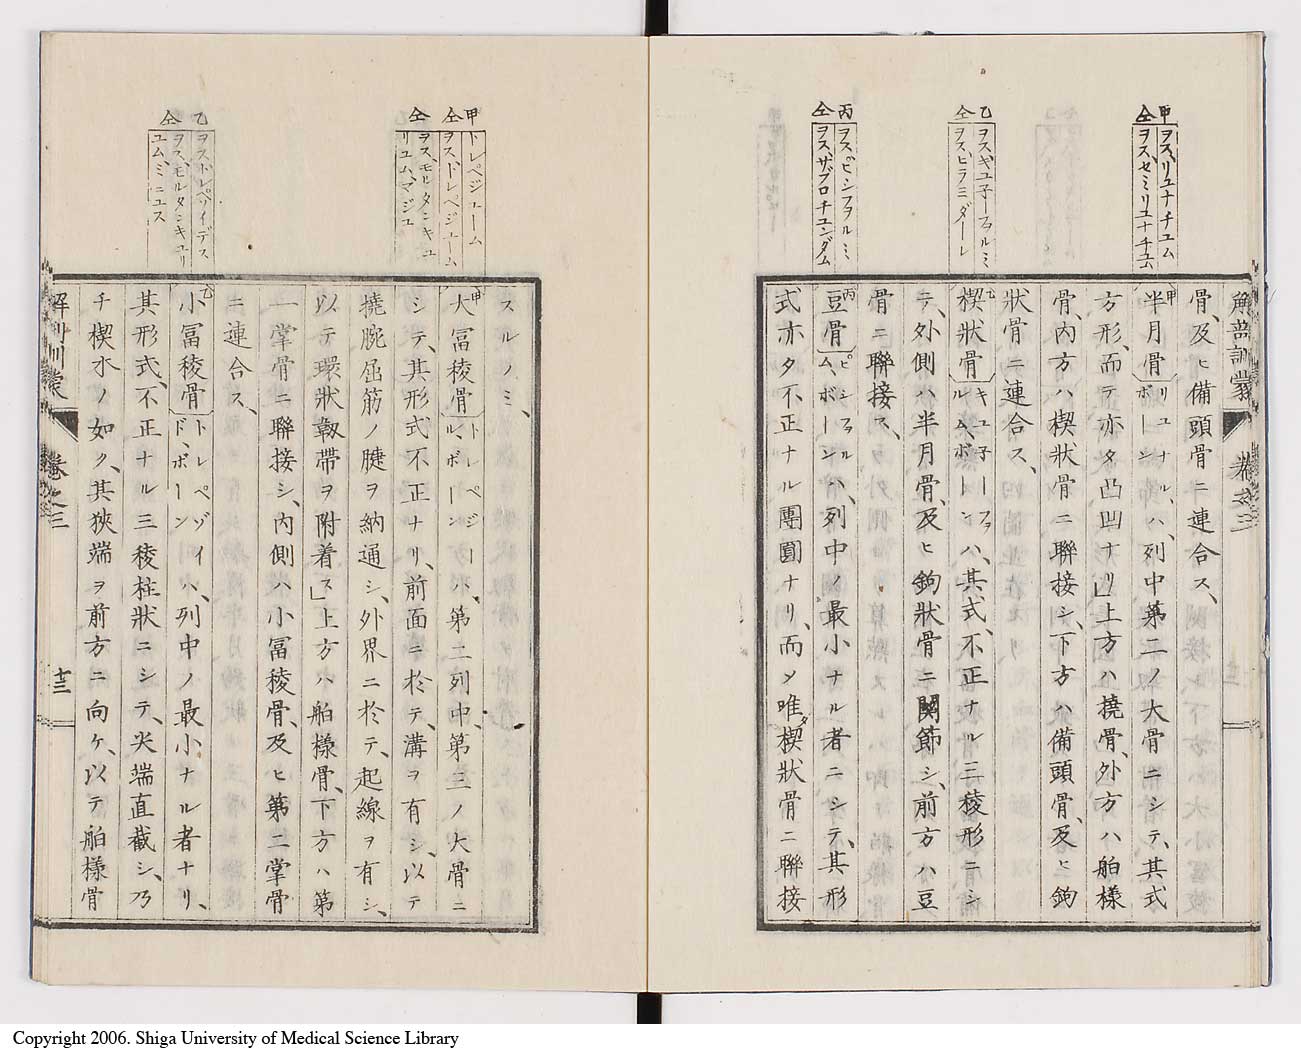 甲 仝
ヲス、リユナチユム
ヲス、セミリユナチユム
乙 仝
ヲスキユ子ーファルミ
ヲス、ヒラミダーレ
丙 仝
ヲス、ピシファルミ
ヲス、サブロチユンダム
解剖訓蒙 卷之三
骨、及ヒ備頭骨ニ連合ス、
甲半月骨リユナル、ボーンハ、列中第二ノ大骨ニシテ、其式
方形、而テ亦タ凸凹ナリ」上方ハ橈骨、外方ハ舶樣
骨、内方ハ楔狀骨ニ聯接シ、下方ハ備頭骨、及ヒ鉤
狀骨ニ連合ス、
乙楔狀骨キユ子ーファルム、ボーンハ、其式、不正ナル三稜形ニシ
テ、外側ハ半月骨、及ヒ鉤狀骨ニ関節シ、前方ハ豆
骨ニ聯接ス、
丙豆骨ピシファルム、ボーンハ、列中ノ最小ナル者ニシテ、其形
式亦タ不正ナル團圓ナリ、而メ唯タ楔狀骨ニ聯接
甲 仝 仝
トレペジユーム
ヲス、トレペジユーム
ヲス、モルタンキユ
リユム、マジユ
乙 仝
ヲス、トレペソイデス
ヲス、モルタンキユリ
ユム、ミニユス
スルノミ、
甲大冨稜骨トレペジール、ボーンハ、第二列中、第三ノ大骨ニ
シテ、其形式不正ナリ、前面ニ於テ、溝ヲ有シ、以テ
橈腕屈筋ノ腱ヲ納通シ、外界ニ於テ、起線ヲ有シ、
以テ環狀韌帶ヲ附着ス」上方ハ舶樣骨、下方ハ第
一掌骨ニ聯接シ、内側ハ小冨稜骨、及ヒ第二掌骨
ニ連合ス、
乙小冨稜骨トレペゾイド、ボーンハ、列中ノ最小ナル者ナリ、
其形式、不正ナル三稜柱狀ニシテ、尖端直截シ、乃
チ楔水ノ如ク、其狹端ヲ前方ニ向ケ、以テ舶樣骨
解剖訓蒙 卷之三 十三
Copyright 2006. Shiga University of Medical Science Library